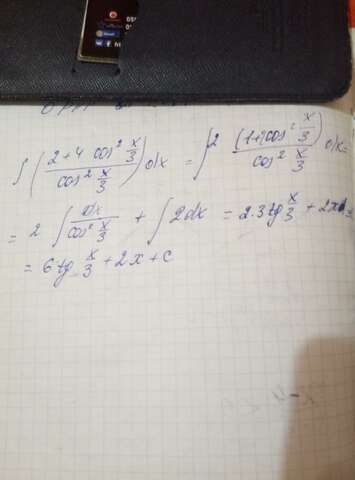 ∫ ((2+4 cos² x/3)/(cos² x/3)) dx = ∫ 2 (1+2cos² x/3)/(cos² x/3) dx =
= 2 ∫ dx/(cos² x/3) + ∫ 2 dx = 2·3 tg x/3 + 2x
= 6 tg x/3 + 2x + C